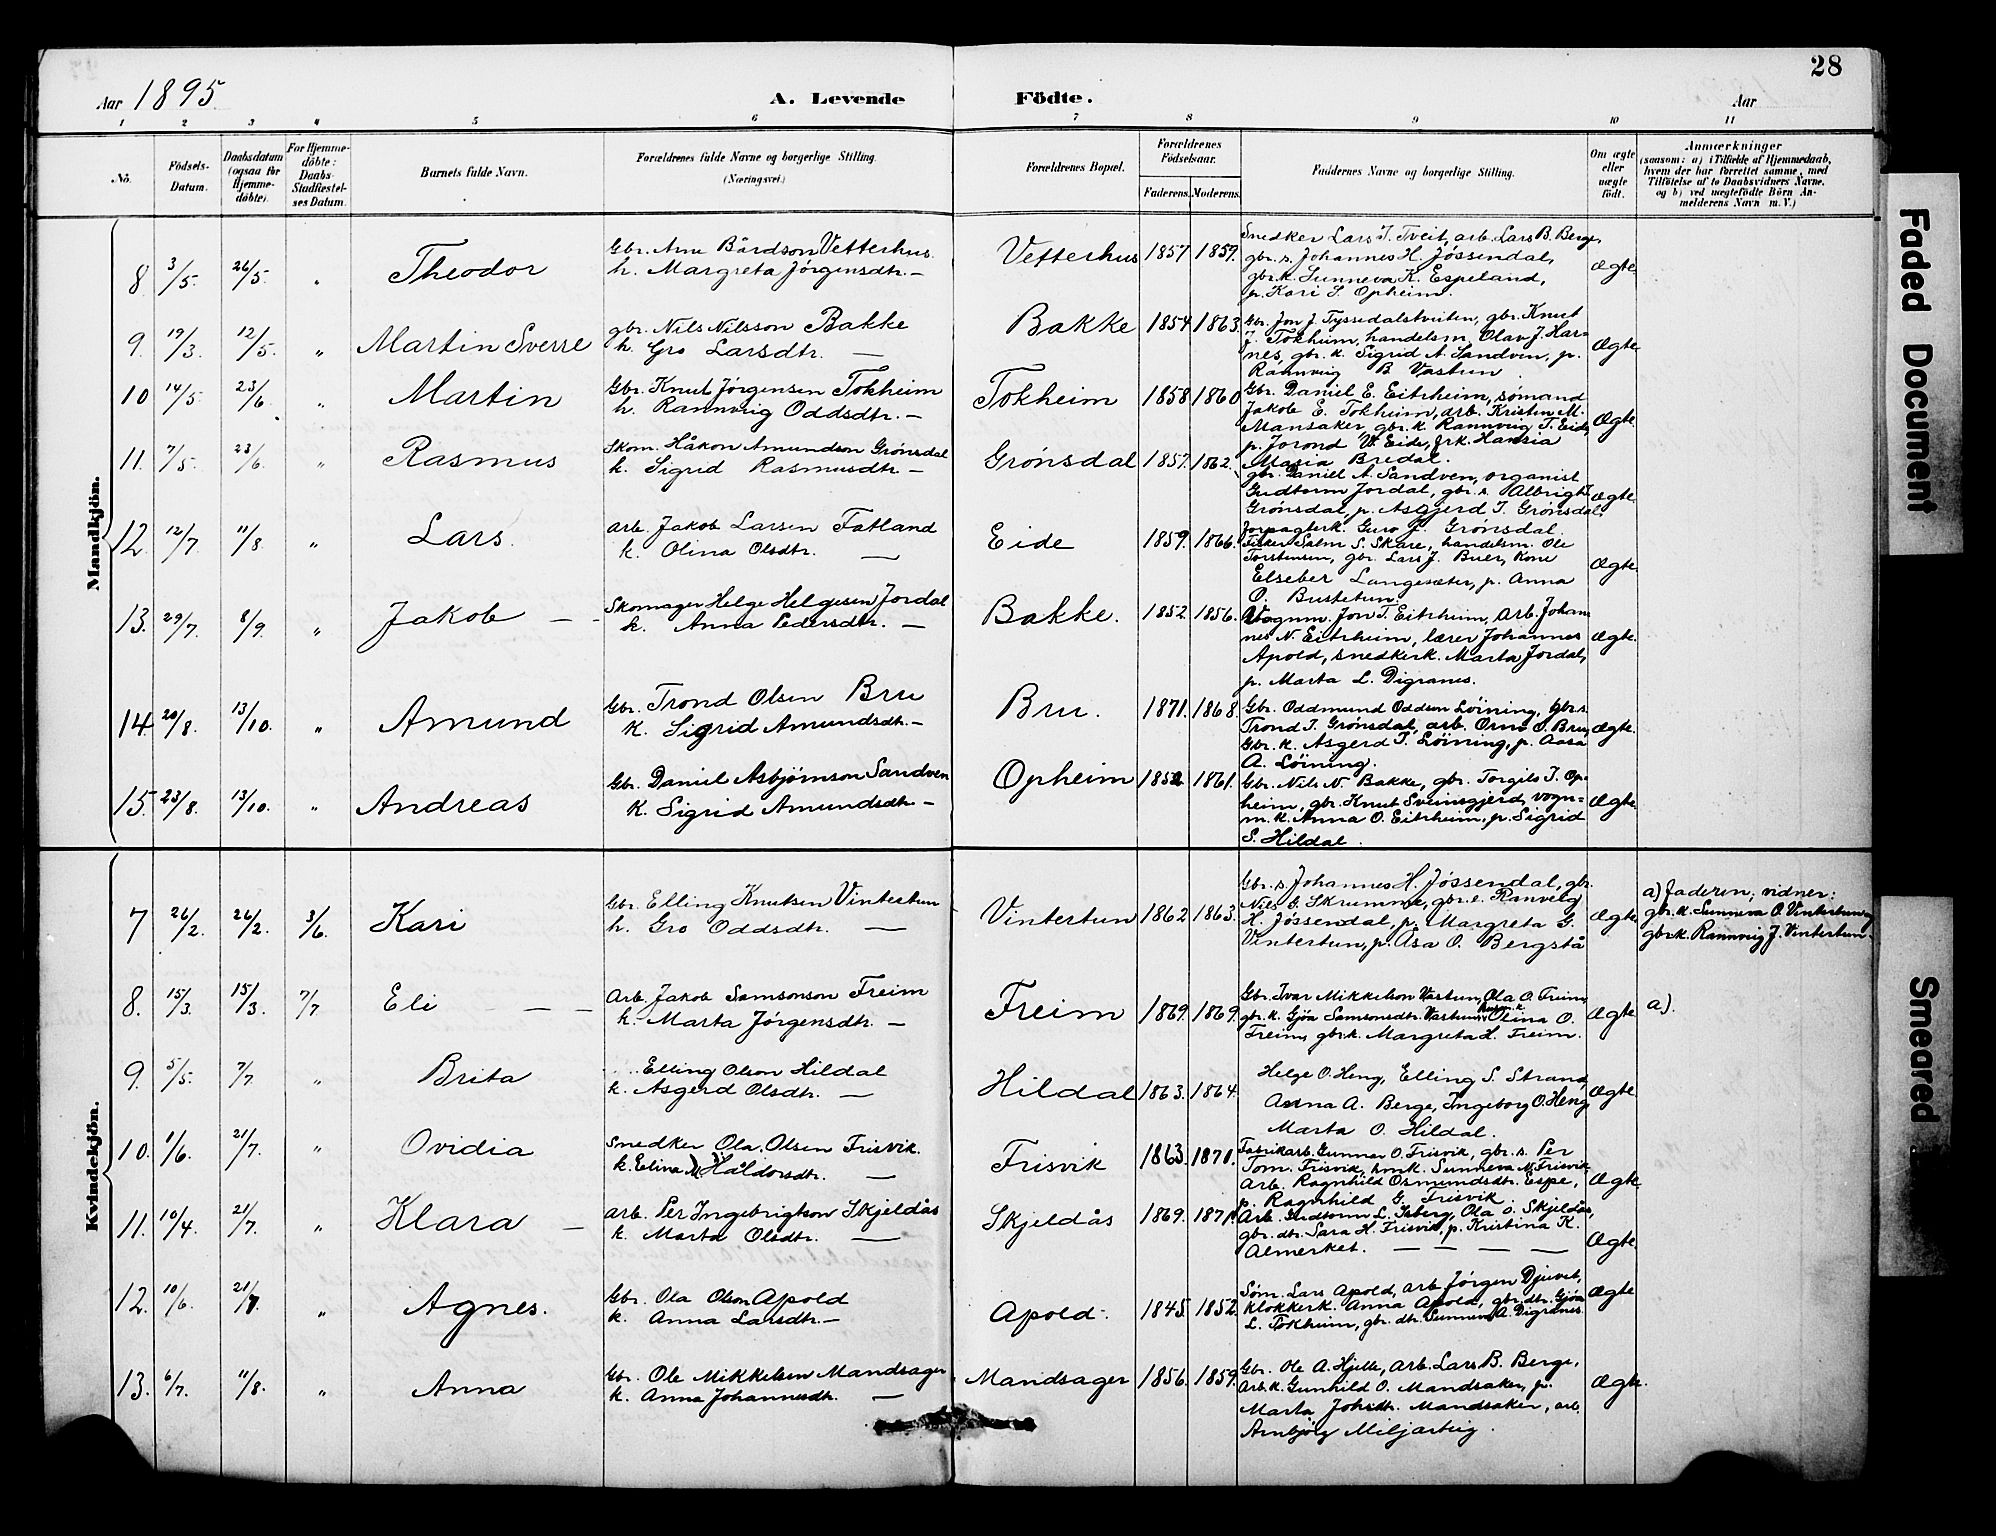 28
Aar 1895 A. Levende Födte. Aar
1 2 3 4 5 6 7 8 9 10 11
No. Födsels-Datum. Daabsdatum (ogsaa for Hjemme-döbte). For Hjemme-döbte: Daabs-Stadfæstelses Datum. Barnets fulde Navn. Forældrenes fulde Navne og borgerlige Stilling. (Næringsvei.) Forældrenes Bopæl. Forældrenes Födselsaar. Faderens. Moderens. Faddernes Navne og borgerlige Stilling. Om ægte eller uægte födt. Anmærkninger (saasom: a) i Tilfælde af Hjemmedaab, hvem der har forrettet samme, med Tilföielse af to Daabsvidners Navne, og b) ved uægtefödte Börn Anmelderens Navn m. V.)
Mandkjön.
8. 3/5. 26/5. " Theodor
Gbr. Arne Bårdson Vetterhus.
h. Margreta Jörgensdtr. —
Vetterhus 1857 1859.
Snedker Lars T. Tveit, arb. Lars B. Berge,
gbr. s. Johannes H. Jössendal,
gbr. k. Sunneva K. Espeland,
p. Kari S. Opheim.
Ægte
9. 19/3. 12/5. " Martin Sverre
gbr. Nils Nilsson Bakke
h. Gro Larsdtr. —
Bakke 1854 1863.
Gbr. Jon J. Tyssedalstveiten, gbr. Knut
J. Tokheim, handelsm. Olav J. Har-
nes, gbr. k. Sigrid A. Sandven, p.
Rannveig B Vastun.
Ægte
10 14/5 23/6. " Martin
Gbr. Knut Jörgensen Tokheim
h. Rannveig Oddsdtr. —
Tokheim 1858 1860
Gbr. Daniel E. Eitrheim, sömand
Jakob E. Tokheim, arb. Kristen M.
Mansaker, gbr. k. Rannveig T. Eide,
p. Jorond Eide, frk. Hansia
Maria Bredal.
Ægte
11. 7/5. 23/6. " Rasmus
Skom. Håkon Amundson Grönsdal
k. Sigrid Rasmusdtr —
Grönsdal 1857. 1862.
gbr. Daniel A. Sandven, organist
Gudtorm Jordal, gbr. s. Albrigt
Grönsdal, p. Asgjerd T. Grönsdal,
Guro J. Grönsdal
Ægte
12. 12/7. 11/8. " Lars.
arb. Jakob Larsen Fatland
k. Olina Olsdtr. —
Eide 1859. 1866.
Fisker Salm S. Skare, handelsm. Ole
Torstensen, gbr. Lars J. Buer, Kone
Elseber Langesæter, p. Anna
O. Bustetun.
Ægte
13. 29/7. 8/9. " Jakob — -
Skomager Helge Helgesen Jordal
k. Anna Pedersdtr. —
Bakke. 1852. 1856.
Vognm. Jon T. Eitrheim, Arb. Johan-
nes N. Eitrheim, lærer Johannes
Apold, snedkerk. Marta Jordal,
p. Marta L. Digranes.
Ægte.
14 20/8. 13/10. " Amund
Gbr. Trond Olsen Bru
K. Sigrid Amundsdtr. —
Bru. 1871. 1868.
Gbr. Oddmund Oddsen Löining, gbr. s.
Trond T. Grönsdal, arb. Orm O. Bru,
Gbr. k. Asgerd T. Löining, p. Aasa
A. Löining.
Ægte.
15. 23/8. 13/10. " Andreas
Gbr. Daniel Asbjörnson Sandven
K. Sigrid Amundsdtr —
Opheim 1852 1861.
Gbr. Nils N. Bakke, gbr. Torgils T. Op-
heim, gbr. Knut Sveinsgjerd, vogn-
m. k. Anna O. Eitrheim, p. Sigrid
S. Hildal.
Ægte.
Kvindekjön.
7 26/2. 26/2. 3/6. Kari
Gbr. Elling Knutsen Vintertun
h. Gro Oddsdtr. —
Vintertun 1862 1863.
Gbr. s. Johannes H. Jössendal, gbr.
Nils G. Skrumme, gbr. e. Ranveig
H. Jössendal, p. Margreta G.
Vintertun, p. Asa O. Bergstå
Ægte
a) faderen; vidner:
gbr. k. Sunneva O. Vintertun og
gbr. k. Rannveig J. Vintertun.
8. 15/3. 15/3. 7/7. Eli — —
Arb. Jakob Samsonson Freim
k. Marta Jörgensdtr. —
Freim 1869. 1869.
Gbr. Ivar Mikkelson Vastun, Ola O. Freim,
gbr. k. Gjöa Samsonsdtr. Vastun, husm. k. Olina O.
Freim, gbr. k. Margreta H. Freim.
Ægte a).
9. 5/5. 7/7. " Brita
Elling Olson Hildal
k. Asgerd Olsdtr. —
Hildal 1863. 1864.
Helge O. Heng, Elling S. Strand,
Anna A. Berge, Ingeborg O. Heng
Marta O. Hildal.
Ægte
10. 1/6. 21/7. " Ovidia
Snedker Ola Olsen Frisvik.
k. Elina M. Håldorsdtr. —
Frisvik 1863. 1870.
Fabrikarb. Gunnar O. Frisvik, gbr. s. Per
Tom. Frisvik, hmk. Sunneva N. Frisvik
Arb. Ragnhild Osmundsdtr. Espe,
p. Ragnhild G. Frisvik.
Ægte
11. 10/4. 21/7. " Klara —
arb. Per Ingebrigtson Skjeldås
k. Marta Olsdtr. —
Skjeldås 1869. 1871.
Arb. Gudtorm L. Isberg, Ola O. Skjeldås,
gbr. dtr. Sara H. Frisvik, p. Kristina K.
Almerket. — — — —
Ægte.
12. 10/6. 21/7. " Agnes.
Gbr. Ola Olson Apold
k. Anna Larsdtr. —
Apold. 1845. 1852.
Söm. Lars Apold, arb. Jörgen Djuvet,
Klokkerk. Anna Apold, gbr. dtr. Gjöa
L. Tokheim, gbr. dtr. Sunneva A. Digranes.
Ægte
13. 6/7. 11/8. " Anna
Gbr. Ole Mikkelsen Mandsager
k. Anna Johannesdtr. —
Mandsager 1856. 1859.
Gbr. Ole A. Hjelle, arb. Lars B. Berge,
arb. k. Gunhild O. Mandsaker, p.
Marta Johsdtr. Mandsaker, arb.
Arnbjörg Miljarteig.
Ægte.
Faded Document
Smeared